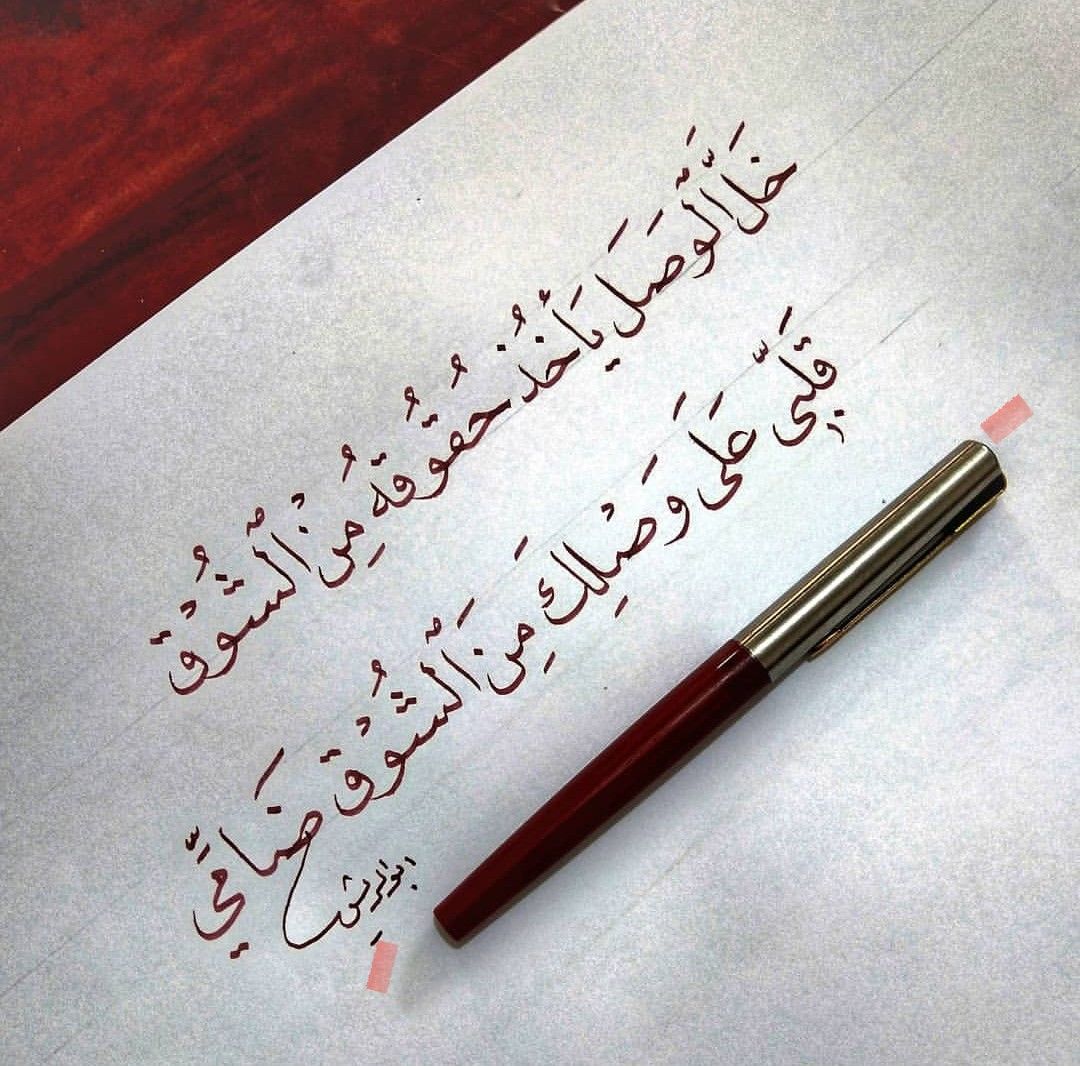 خَلَ الَّوَصَل يَأْخُذ حُقُوقهُ مِنْ الّشُوْق
قَلبِّى عَلَى وَصْلِكَ مِنَ الّشُوْق ضَامِّي
ابو الريش